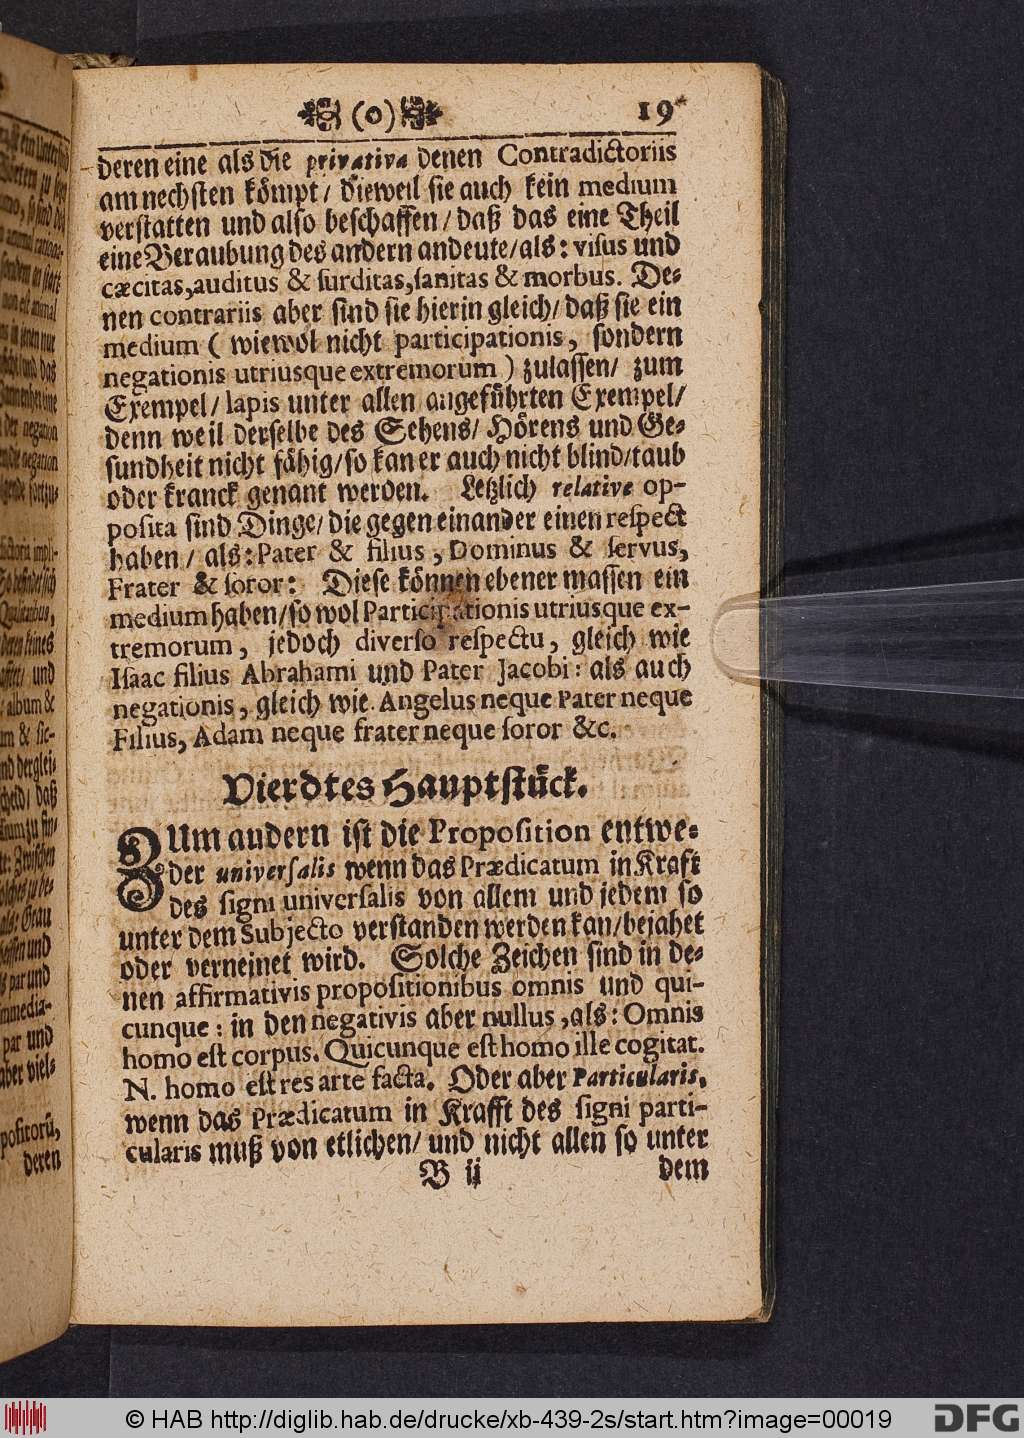 (o) 19
deren eine als die privativa denen Contradictoriis
am nechsten kömpt / dieweil sie auch kein medium
verstatten und also beschaffen / daß das eine Theil
eine Beraubung des andern andeute / als: viſus und
cæcitas, auditus & ſurditas, ſanitas & morbus. De-
nen contrariis aber sind sie hierin gleich / daß sie ein
medium ( wiewol nicht participationis, sondern
negationis utriusque extremorum ) zulassen / zum
Exempel / lapis unter allen angeführten Exempel /
denn weil derselbe des Sehens / Hörens und Ge-
sundheit nicht fähig / so kan er auch nicht blind / taub
oder kranck genant werden. Letzlich relative op-
poſita sind Dinge / die gegen einander einen reſpect
haben / als: Pater & filius, Dominus & ſervus,
Frater & ſoror: Diese können ebener massen ein
medium haben / so wol Participationis utriusque ex-
tremorum, jedoch diverſo reſpectu, gleich wie
Iſaac filius Abrahami und Pater Jacobi: als auch
negationis, gleich wie. Angelus neque Pater neque
Filius, Adam neque frater neque ſoror &c.
Vierdtes Hauptstück.
ZUm andern ist die Propoſition entwe-
der univerſalis wenn das Prædicatum in Kraft
des ſigni univerſalis von allem und jedem so
unter dem Subjecto verstanden werden kan / bejahet
oder verneinet wird. Solche Zeichen sind in de-
nen affirmativis propoſitionibus omnis und qui-
cunque: in den negativis aber nullus, als: Omnis
homo eſt corpus. Quicunque eſt homo ille cogitat.
N. homo eſt res arte facta. Oder aber Particularis,
wenn das Prædicatum in Krafft des ſigni parti-
cularis muß von etlichen / und nicht allen so unter
B ij dem
© HAB http://diglib.hab.de/drucke/xb-439-2s/start.htm?image=00019 DFG